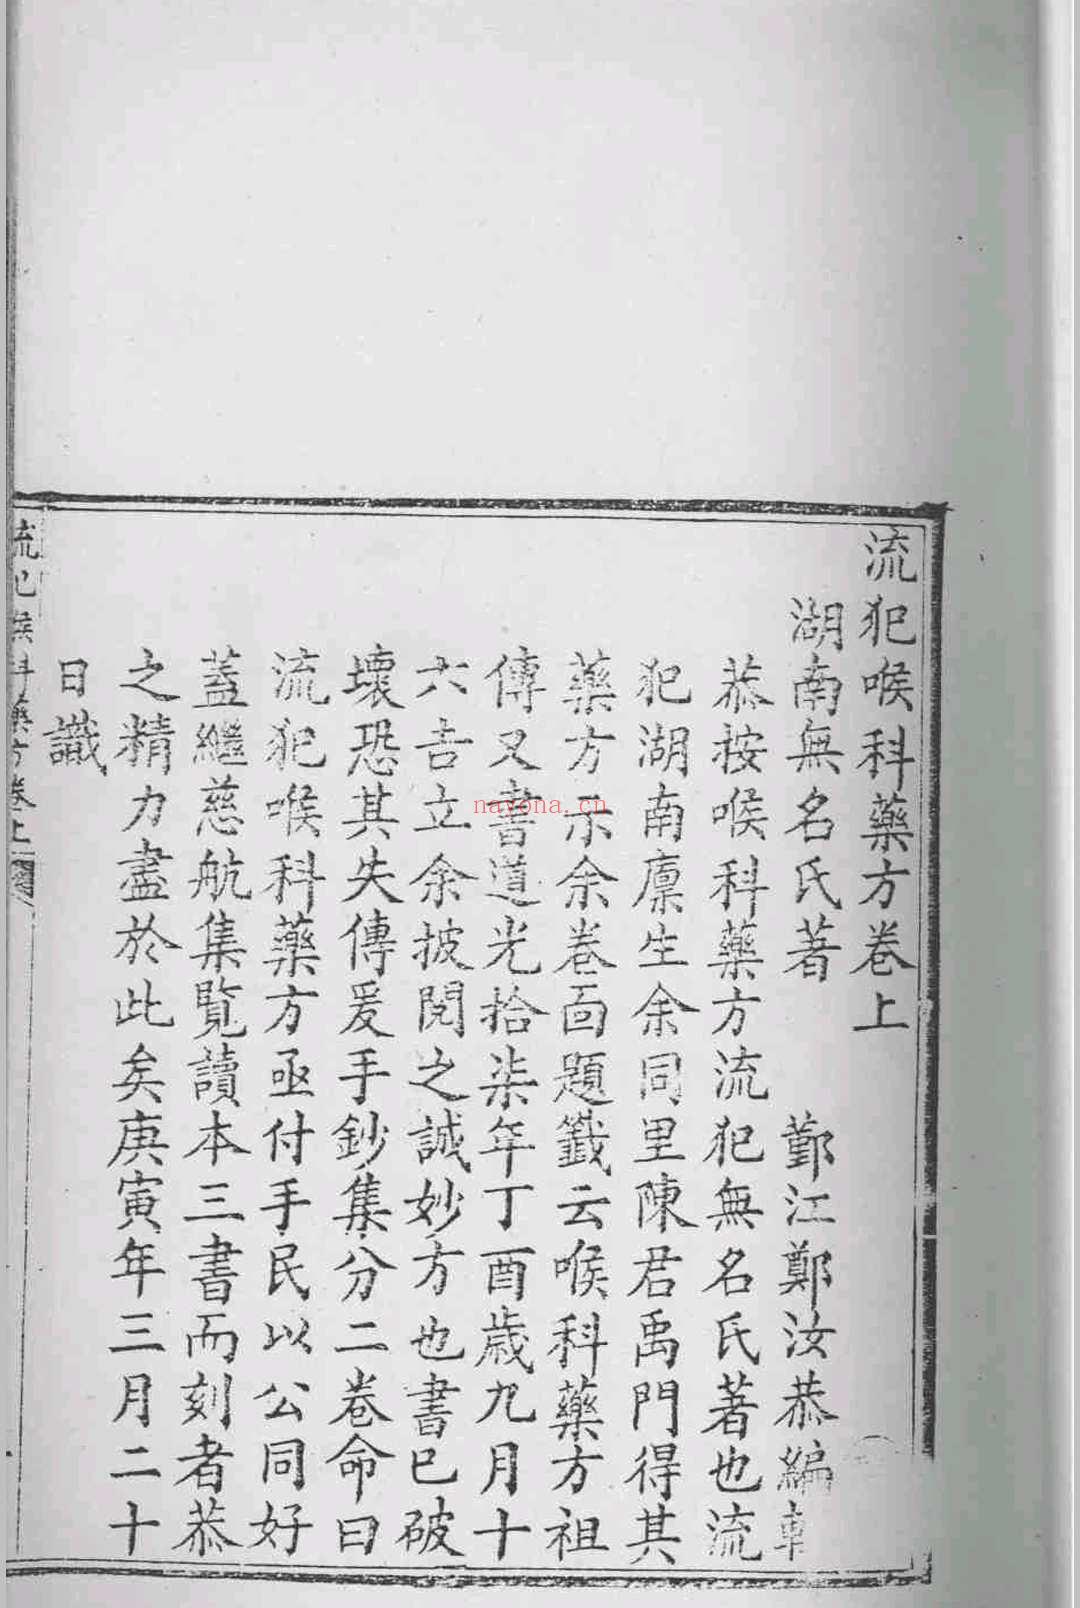 流犯喉科藥方卷上
湖南無名氏著 鄞江鄭汝恭編輯
恭按喉科藥方流犯無名氏著也流
犯湖南廪生余同里陳君禹門得其
藥方示余卷面題籤云喉科藥方祖
傳又書道光拾柒年丁酉歲九月十
六吉立余披閱之誠妙方也書已破
壞恐其失傳爰手鈔集分二卷命曰
流犯喉科藥方亟付手民以公同好
蓋繼慈航集覧讀本三書而刻者恭
之精力盡於此矣庚寅年三月二十
日識
流犯喉科藥方卷上
nayona.cn